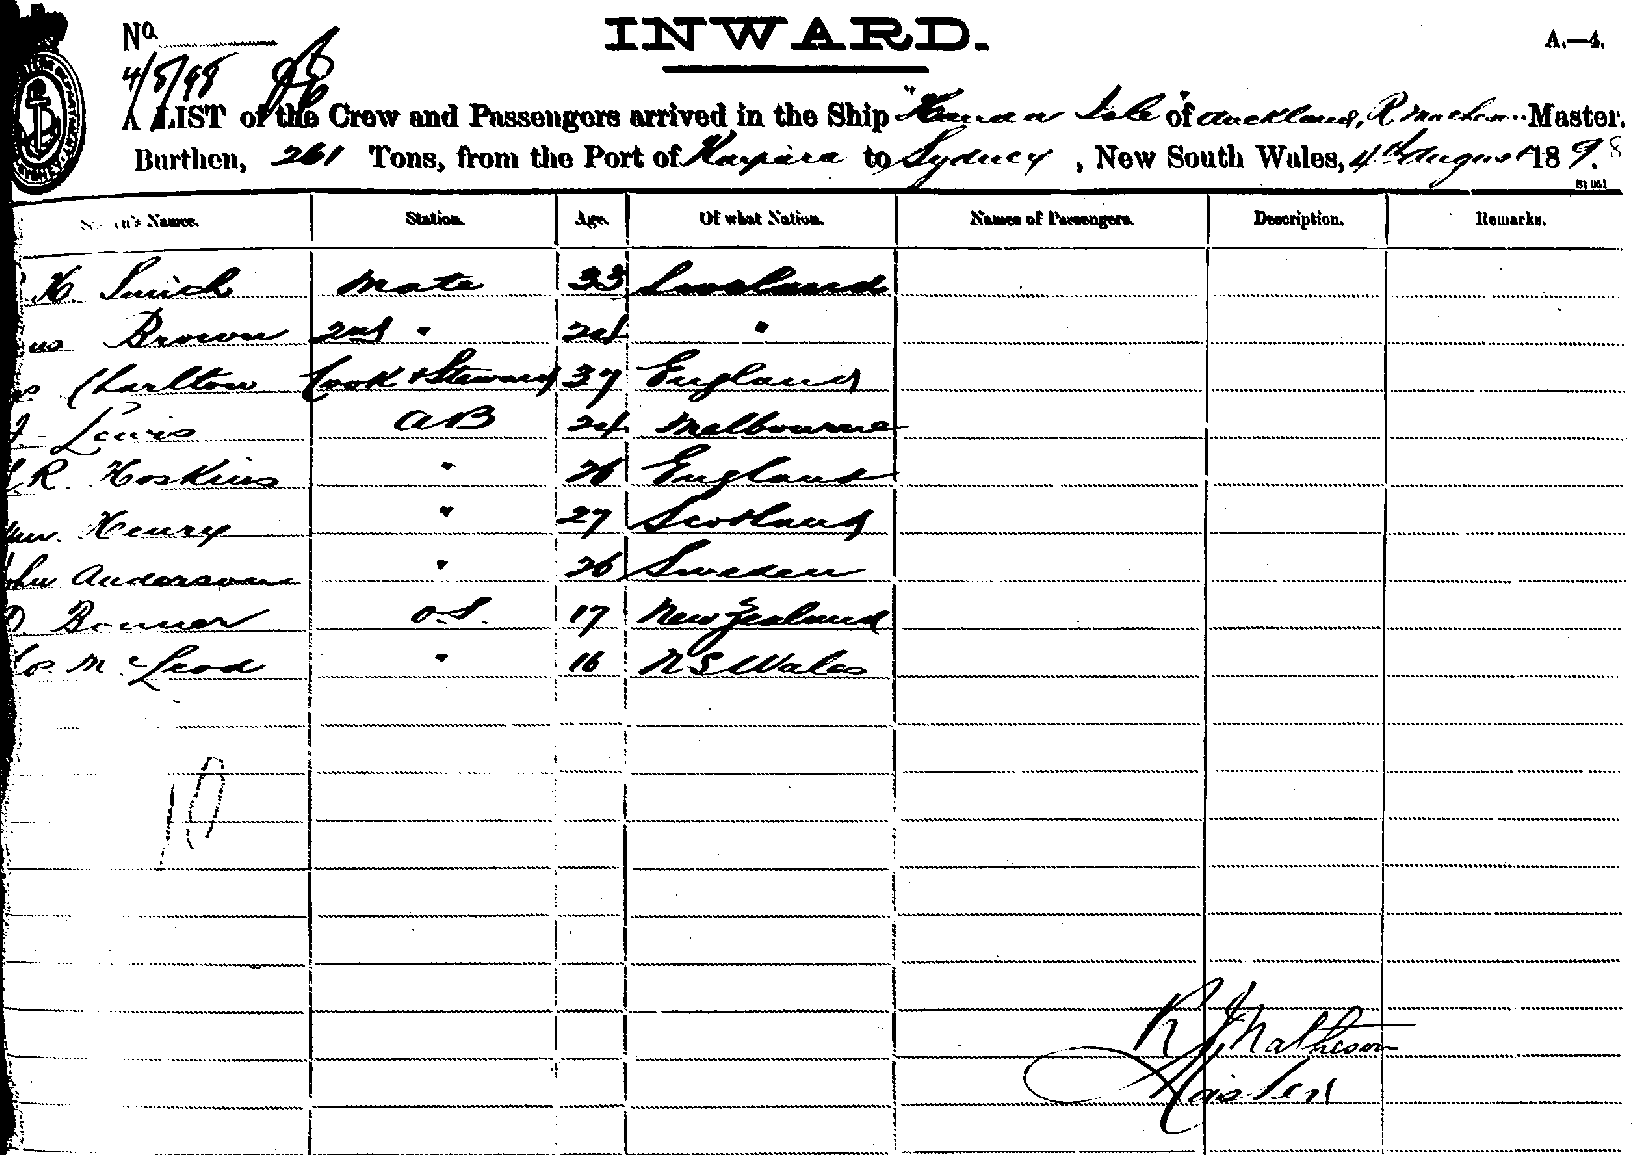 No.
INWARD.
A.—4.
4/8/98
A LIST of the Crew and Passengers arrived in the Ship " Isle" of Auckland, R Matheson Master,
Burthen, 261 Tons, from the Port of Kaipara to Sydney, New South Wales, 4th August 1898
Names. Station. Age. Of what Nation. Names of Passengers. Description. Remarks.
H Smith Mate 33
Brown 2nd " 24 "
Charlton Cook & Steward 37 England
Lewis AB 24 Melbourne
R. Hoskins " 26 England
Henry " 27 Scotland
Anderson " 26 Sweden
Bonner O.S. 17 New Zealand
McLeod " 16 N S Wales
10
R J Matheson
Master